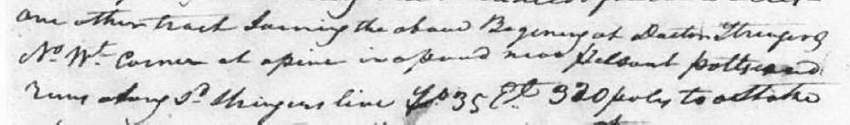 one other tract Joining the above Begining at Doctor Stringers
No. Wt. Corner at a pine in a pond near pottser and
runs along Sd Stringers line So 35 Et. 320 poles to a Stake